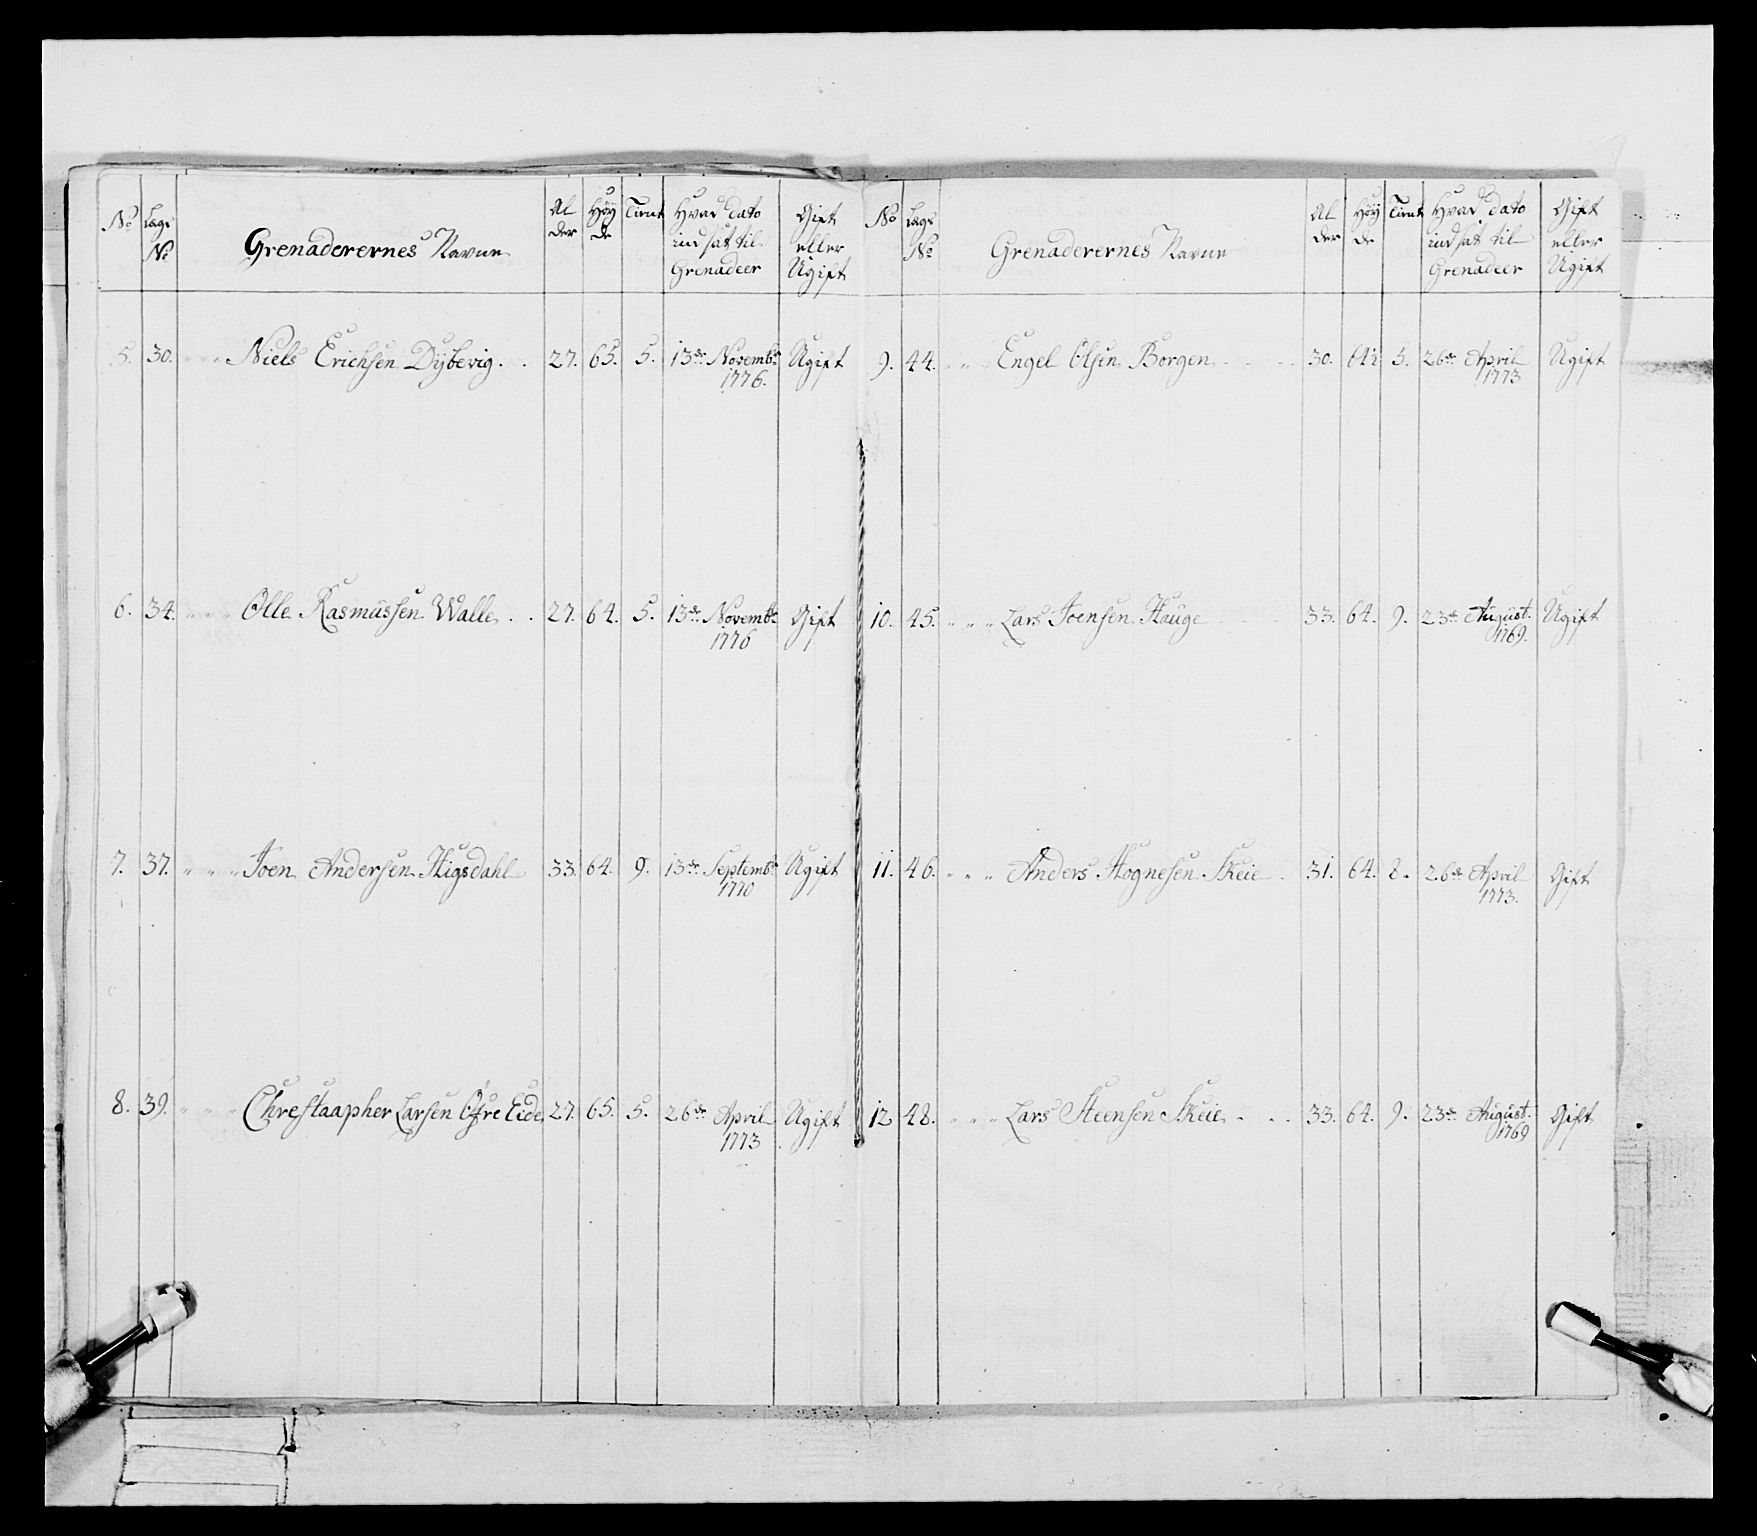 No Lægs No Grenaderernes Navne Al der Høy de Tient Hvad dato indsat til Grenadeer Gift eller Ugift
5. 30. " " " Niels Erichsen Dybevig . . 27. 65. 5. 13de Novembr Ugift
1776.
6. 34. " " " Olle Rasmussen Walle . . 27. 64. 5. 13de Novembr Gift
1776
7. 37. " " " Joen Andersen Higsdahl 33. 64. 9. 13de Septembr Ugift
1770
8. 39. " " " Chrestaapher Larsen Øfre Eide 27. 65. 5. 26de April Ugift
1773
No Lægs No Grenaderernes Navne Al der Høy de Tient Hvad dato indsat til Grenadeer Gift eller Ugift
9. 44. " " " Engel Olsen Borgen . . . . 30. 64½ 5. 26de April Ugift
1773
10. 45. " " " Lars Joensen Hauge . . . 33. 64. 9. 23de August. Ugift
1769.
11. 46. " " " Anders Hognesen Skeie . 31. 64. 8. 26de April Gift
1773.
12 48. " " " Lars Steensen Skeie . . . 33. 64. 9. 23de August. Gift
1769